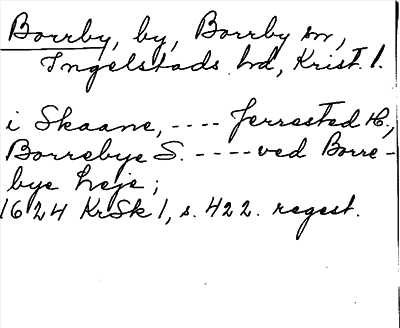 Borrby, by, Borrby sn,
Ingelstads hd, Krist. l.
i Skaane, ---- Jerrested H.,
Borrebye S. ---- ved Borre-
bye Leje;
1624 KrSk 1, s. 422. regest.